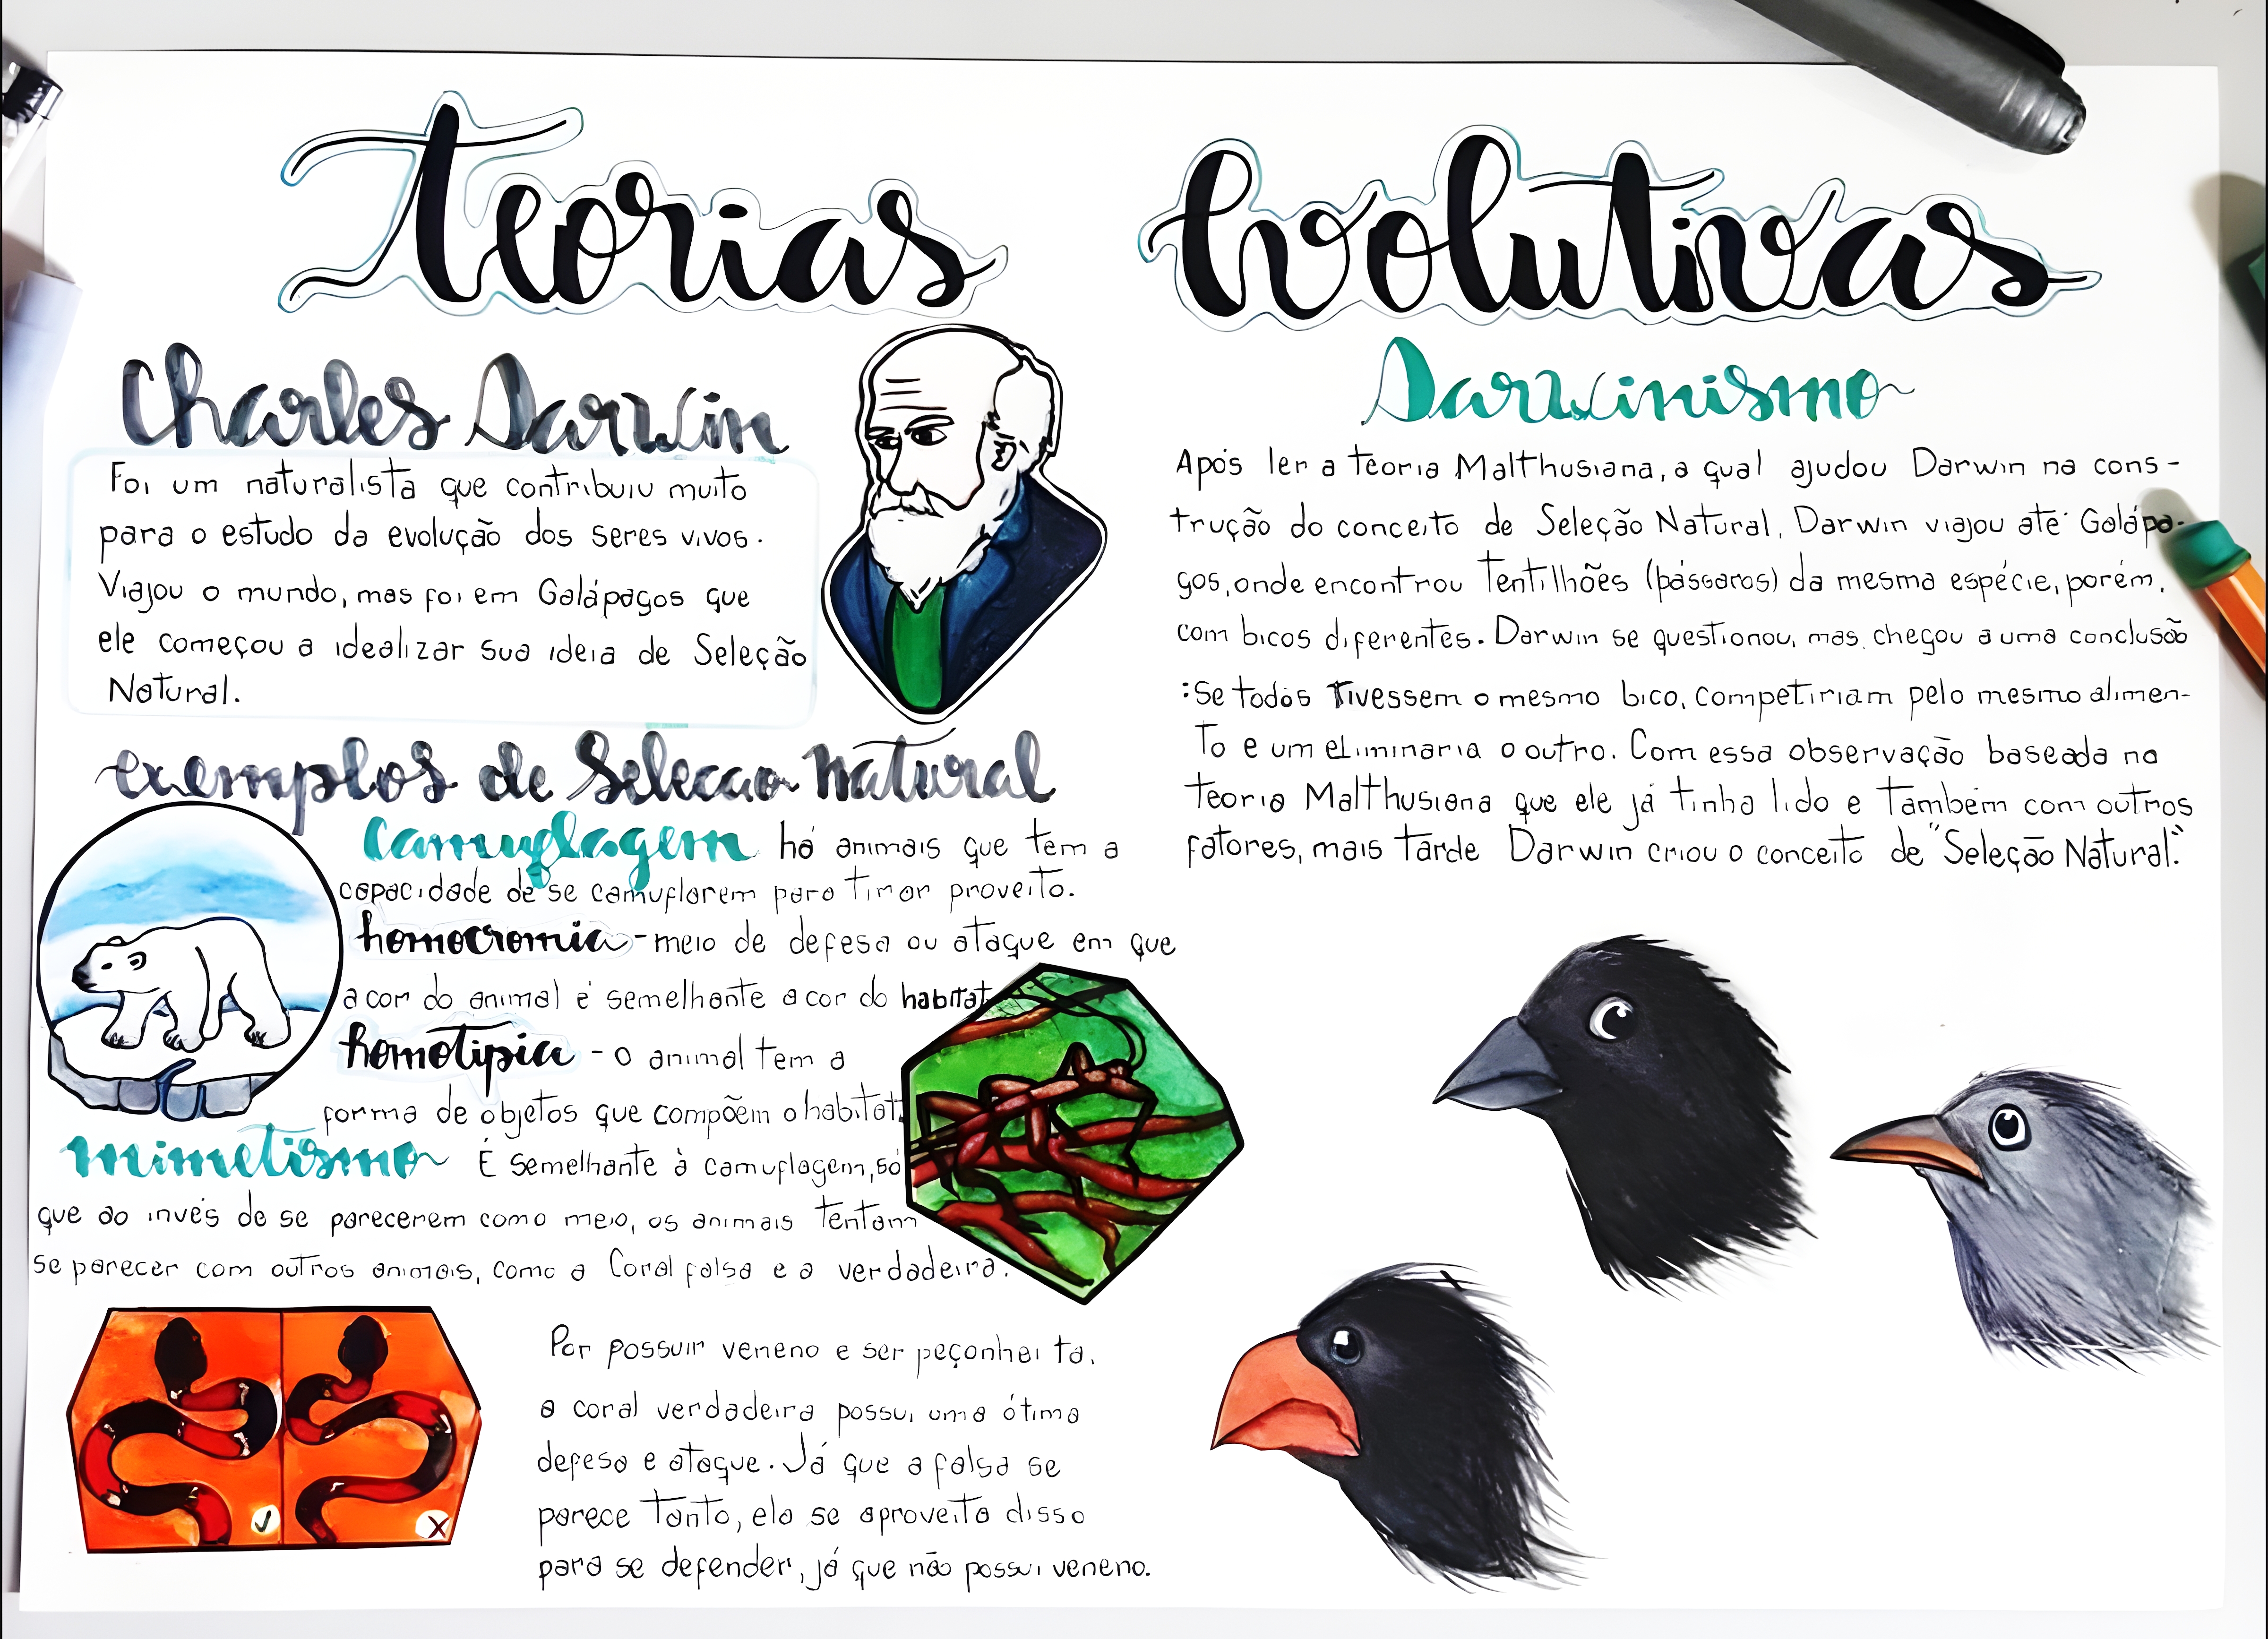 Teorias Evolutivas
Charles Darwin
Foi um naturalista que contribuiu muito
para o estudo da evolução dos seres vivos.
Viajou o mundo, mas foi em Galápagos que
ele começou a idealizar sua ideia de Seleção
Natural.
exemplos de Selecao natural
Camuflagem há animais que têm a
capacidade de se camuflarem para tirar proveito.
homocromia - meio de defesa ou ataque em que
a cor do animal é semelhante a cor do habitat
homotipia - o animal tem a
forma de objetos que compõem o habitat.
mimetismo É semelhante à camuflagem, só
que ao invés de se parecerem como meio, os animais tentam
se parecer com outros animais, como a Coral falsa e a verdadeira.
Por possuir veneno e ser peçonhenta,
a coral verdadeira possui uma ótima
defesa e ataque. Já que a falsa se
parece tanto, ela se aproveita disso
para se defender, já que não possui veneno.
Darwinismo
Após ler a teoria Malthusiana, a qual ajudou Darwin na cons-
trução do conceito de Seleção Natural, Darwin viajou até Galápa-
gos, onde encontrou Tentilhões (pássaros) da mesma espécie, porém,
com bicos diferentes. Darwin se questionou, mas chegou a uma conclusão
:Se todos tivessem o mesmo bico, competiriam pelo mesmo alimen-
to e um eliminaria o outro. Com essa observação baseada na
teoria Malthusiana que ele já tinha lido e também com outros
fatores, mais tarde Darwin criou o conceito de "Seleção Natural".